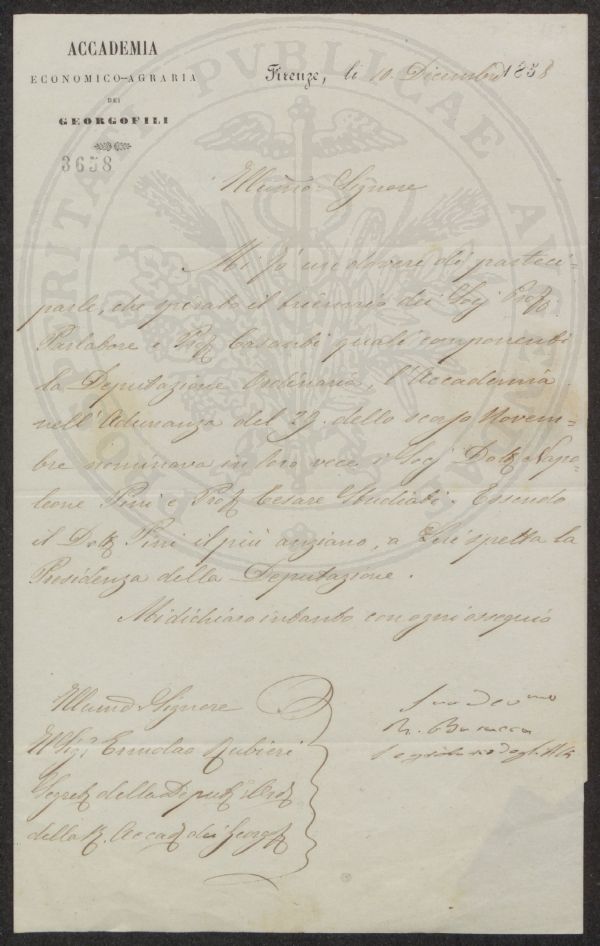 ACCADEMIA
ECONOMICO-AGRARIA
DEI
GEORGOFILI
3658
Firenze, li 10. Dicembre 1858
Illumo Signore
Mi fò un dovere di parteci-
parle, che spirato il triennio dei Socj Prof.
Parlatore e Prof. Casanti quali componenti
la Deputazione Ordinaria, l'Accademia
nell'Adunanza del 29. dello scorso Novem-
bre nominava in loro vece i Socj Dott. Napo-
leone Pini e Prof. Cesare Studiati. Essendo
il Dott. Pini il più anziano, a Lui spetta la
Presidenza della Deputazione.
Mi dichiaro intanto con ogni ossequio
Illumo Signore
Il Sig. Ermolao Rubieri
Segret. della Deput. Ord.
della R. Accad. dei Georg.
Suo Dev mo
degli Atti
PROSPERITATI PVBLICAE AVGENDAE